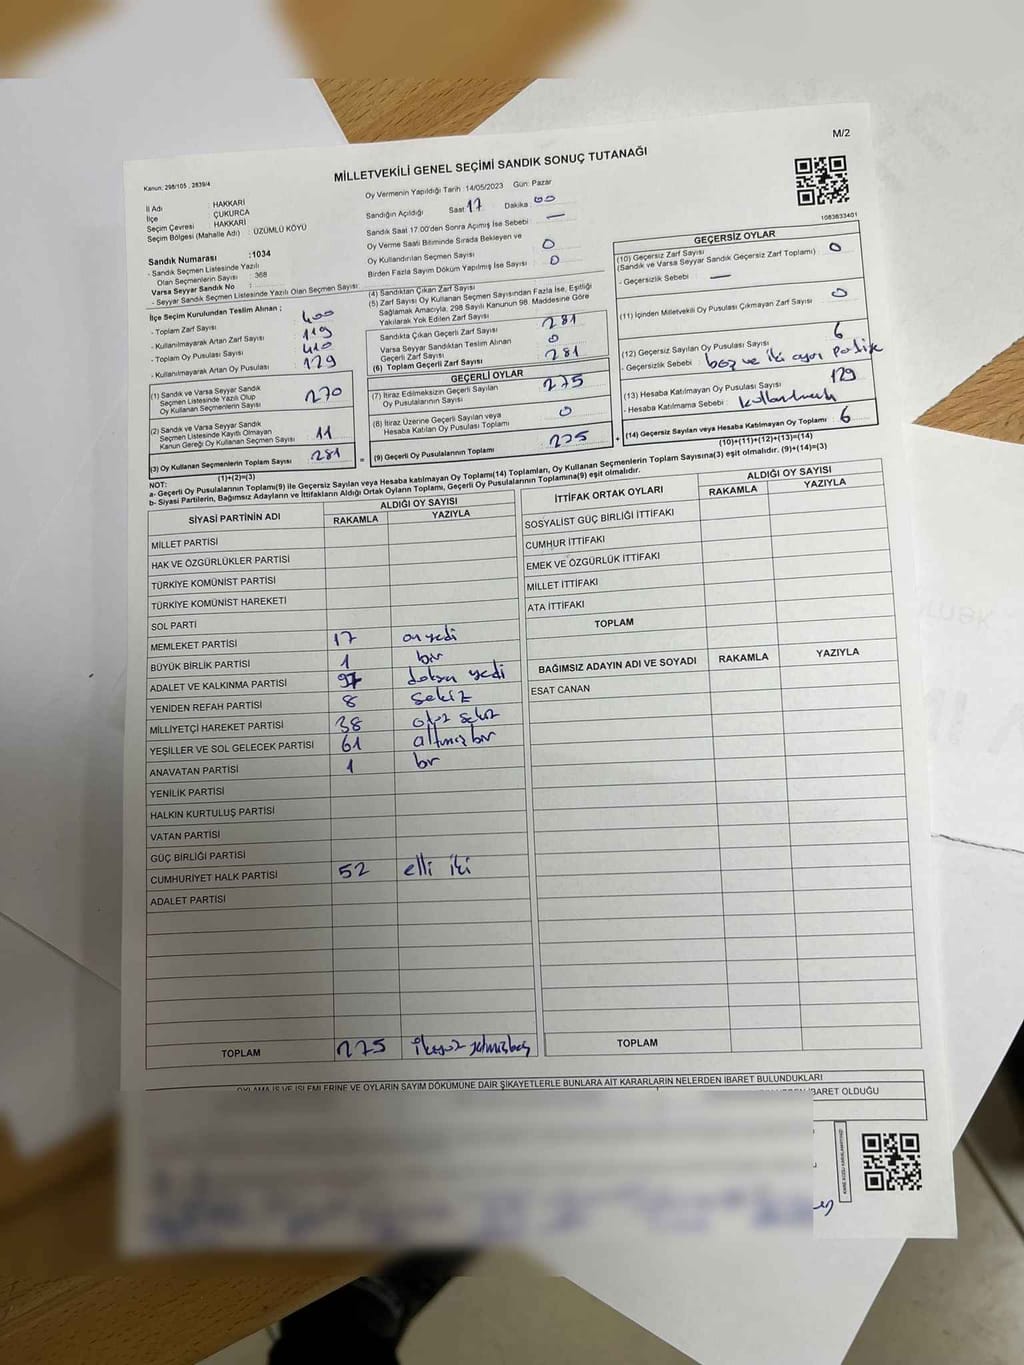 M/2
MİLLETVEKİLİ GENEL SEÇİMİ SANDIK SONUÇ TUTANAĞI
Kanun: 298/105 , 2839/4
Oy Vermenin Yapıldığı Tarih :14/05/2023 Gün: Pazar
İl Adı HAKKARİ
İlçe ÇUKURCA
Seçim Çevresi HAKKARİ
Seçim Bölgesi (Mahalle Adı) : ÜZÜMLÜ KÖYÜ
Sandığın Açıldığı Saat 17 Dakika : 00
Sandık Saat 17.00'den Sonra Açımış İse Sebebi : —
Oy Verme Saati Bitiminde Sırada Bekleyen ve
Oy Kullandırılan Seçmen Sayısı 0
Birden Fazla Sayım Döküm Yapılmış İse Sayısı 0
1083833401
Sandık Numarası :1034
- Sandık Seçmen Listesinde Yazılı
Olan Seçmenlerin Sayısı : 368
Varsa Seyyar Sandık No :
- Seyyar Sandık Seçmen Listesinde Yazılı Olan Seçmen Sayısı:
İlçe Seçim Kurulundan Teslim Alınan ;
- Toplam Zarf Sayısı 400
- Kullanılmayarak Artan Zarf Sayısı 119
- Toplam Oy Pusulası Sayısı 410
- Kullanılmayarak Artan Oy Pusulası 129
(1) Sandık ve Varsa Seyyar Sandık
Seçmen Listesinde Yazılı Olup
Oy Kullanan Seçmenlerin Sayısı 270
(2) Sandık ve Varsa Seyyar Sandık
Seçmen Listesinde Kayıtlı Olmayan
Kanun Gereği Oy Kullanan Seçmen Sayısı 11
(3) Oy Kullanan Seçmenlerin Toplam Sayısı 281
(1)+(2)=(3)
(4) Sandıktan Çıkan Zarf Sayısı
(5) Zarf Sayısı Oy Kullanan Seçmen Sayısından Fazla İse, Eşitliği
Sağlamak Amacıyla, 298 Sayılı Kanunun 98. Maddesine Göre
Yakılarak Yok Edilen Zarf Sayısı
Sandıkta Çıkan Geçerli Zarf Sayısı 281
Varsa Seyyar Sandıktan Teslim Alınan
Geçerli Zarf Sayısı 0
(6) Toplam Geçerli Zarf Sayısı 281
GEÇERLİ OYLAR
(7) İtiraz Edilmeksizin Geçerli Sayılan
Oy Pusulalarının Sayısı 275
(8) İtiraz Üzerine Geçerli Sayılan veya
Hesaba Katılan Oy Pusulası Toplamı 0
= (9) Geçerli Oy Pusulalarının Toplamı 275
GEÇERSİZ OYLAR
(10) Geçersiz Zarf Sayısı
(Sandık ve Varsa Seyyar Sandık Geçersiz Zarf Toplamı) 0
- Geçersizlik Sebebi : —
(11) İçinden Milletvekili Oy Pusulası Çıkmayan Zarf Sayısı 0
(12) Geçersiz Sayılan Oy Pusulası Sayısı 6
- Geçersizlik Sebebi : boş ve iki ayrı
(13) Hesaba Katılmayan Oy Pusulası Sayısı 129
- Hesaba Katılmama Sebebi :
+ (14) Geçersiz Sayılan veya Hesaba Katılmayan Oy Toplamı 6
(10)+(11)+(12)+(13)=(14)
NOT:
a- Geçerli Oy Pusulalarının Toplamı(9) ile Geçersiz Sayılan veya Hesaba katılmayan Oy Toplamı(14) Toplamları, Oy Kullanan Seçmenlerin Toplam Sayısına(3) eşit olmalıdır. (9)+(14)=(3)
b- Siyasi Partilerin, Bağımsız Adayların ve İttifakların Aldığı Ortak Oyların Toplamı, Geçerli Oy Pusulalarının Toplamına(9) eşit olmalıdır.
SİYASİ PARTİNİN ADI ALDIĞI OY SAYISI
RAKAMLA YAZIYLA
MİLLET PARTİSİ
HAK VE ÖZGÜRLÜKLER PARTİSİ
TÜRKİYE KOMÜNİST PARTİSİ
TÜRKİYE KOMÜNİST HAREKETİ
SOL PARTİ
MEMLEKET PARTİSİ 17 on yedi
BÜYÜK BİRLİK PARTİSİ 1 bir
ADALET VE KALKINMA PARTİSİ 97 doksan yedi
YENİDEN REFAH PARTİSİ 8 sekiz
MİLLİYETÇİ HAREKET PARTİSİ 38 otuz sekiz
YEŞİLLER VE SOL GELECEK PARTİSİ 61 altmış bir
ANAVATAN PARTİSİ 1 bir
YENİLİK PARTİSİ
HALKIN KURTULUŞ PARTİSİ
VATAN PARTİSİ
GÜÇ BİRLİĞİ PARTİSİ
CUMHURİYET HALK PARTİSİ 52 elli iki
ADALET PARTİSİ
TOPLAM 275 ikiyüz yetmişbeş
İTTİFAK ORTAK OYLARI ALDIĞI OY SAYISI
RAKAMLA YAZIYLA
SOSYALİST GÜÇ BİRLİĞİ İTTİFAKI
CUMHUR İTTİFAKI
EMEK VE ÖZGÜRLÜK İTTİFAKI
MİLLET İTTİFAKI
ATA İTTİFAKI
TOPLAM
BAĞIMSIZ ADAYIN ADI VE SOYADI ALDIĞI OY SAYISI
RAKAMLA YAZIYLA
ESAT CANAN
TOPLAM
OYLAMA İŞ VE İŞLEMLERİNE VE OYLARIN SAYIM DÖKÜMÜNE DAİR ŞİKAYETLERLE BUNLARA AİT KARARLARIN NELERDEN İBARET BULUNDUKLARI
İBARET OLDUĞU